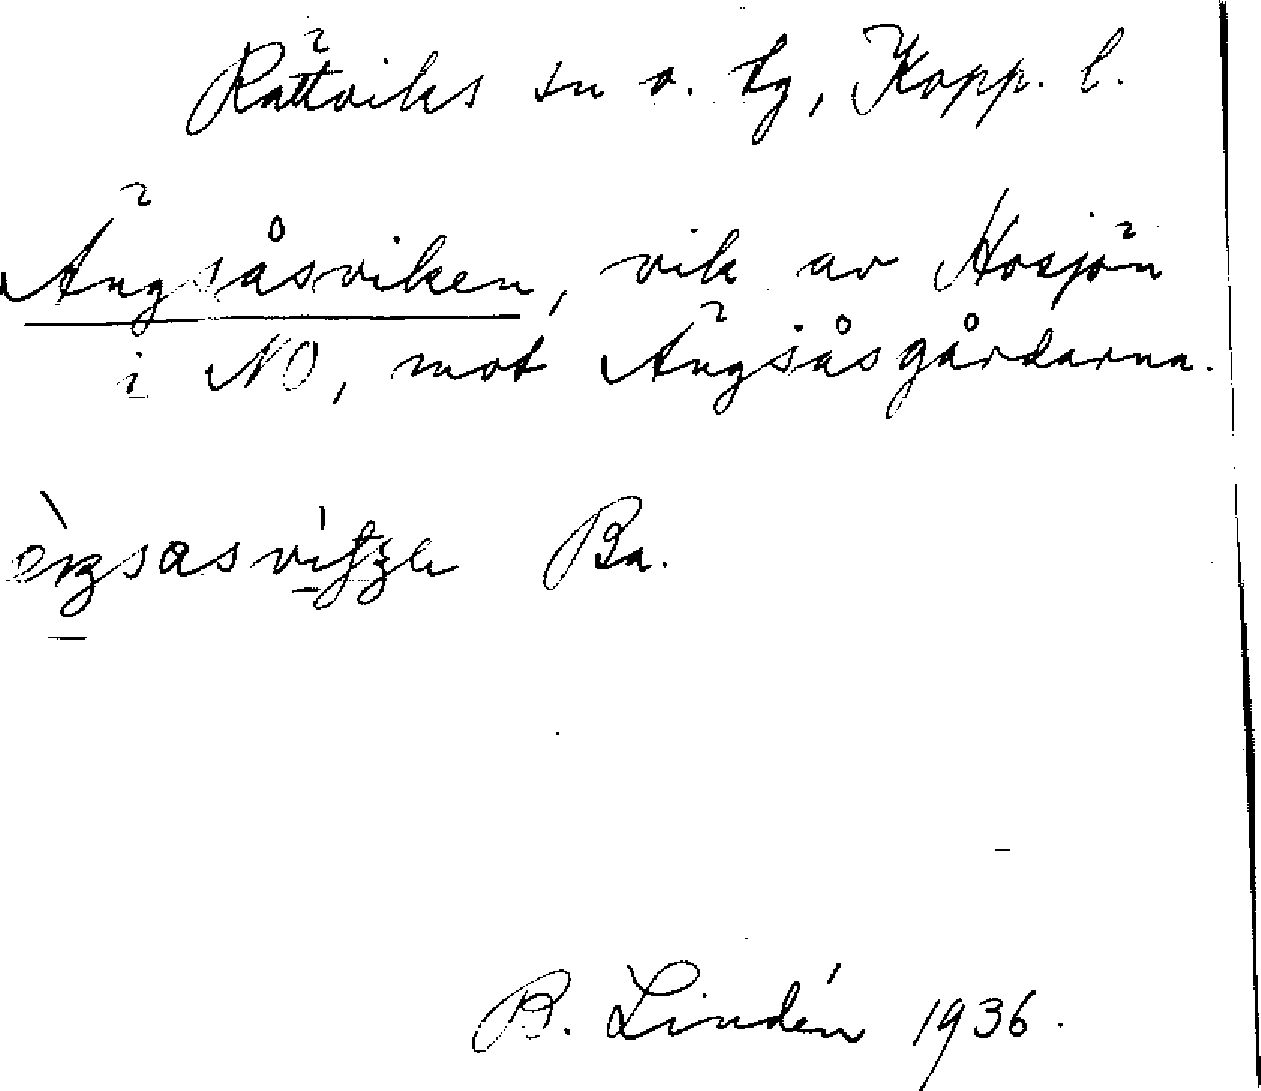 Rättviks sn o. tg, Kopp. l.
Ängsåsviken, vik av Hosjön
i NO, mot Ängsåsgårdarna.
Ba.
B. Lindén 1936.